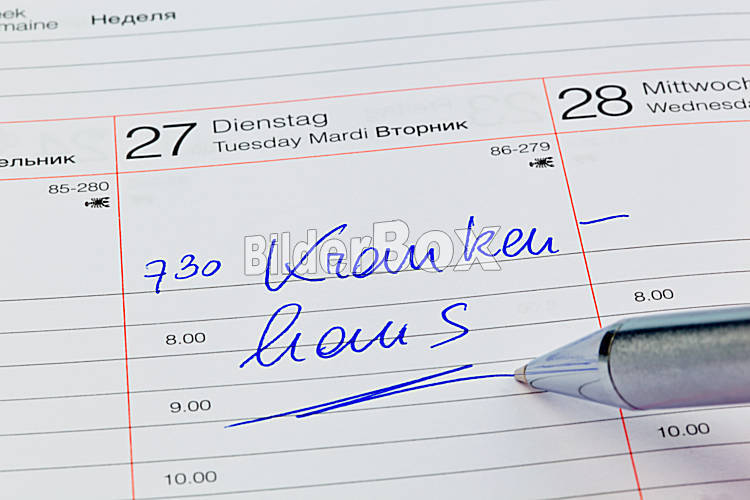 eek
maine Неделя
27 Dienstag
Tuesday Mardi Вторник
28 Mittwoch
Wednesda
ельник
85-280
86-279
730 Kranken-
haus
BilderBox
8.00
8.00
9.00
10.00
10.00